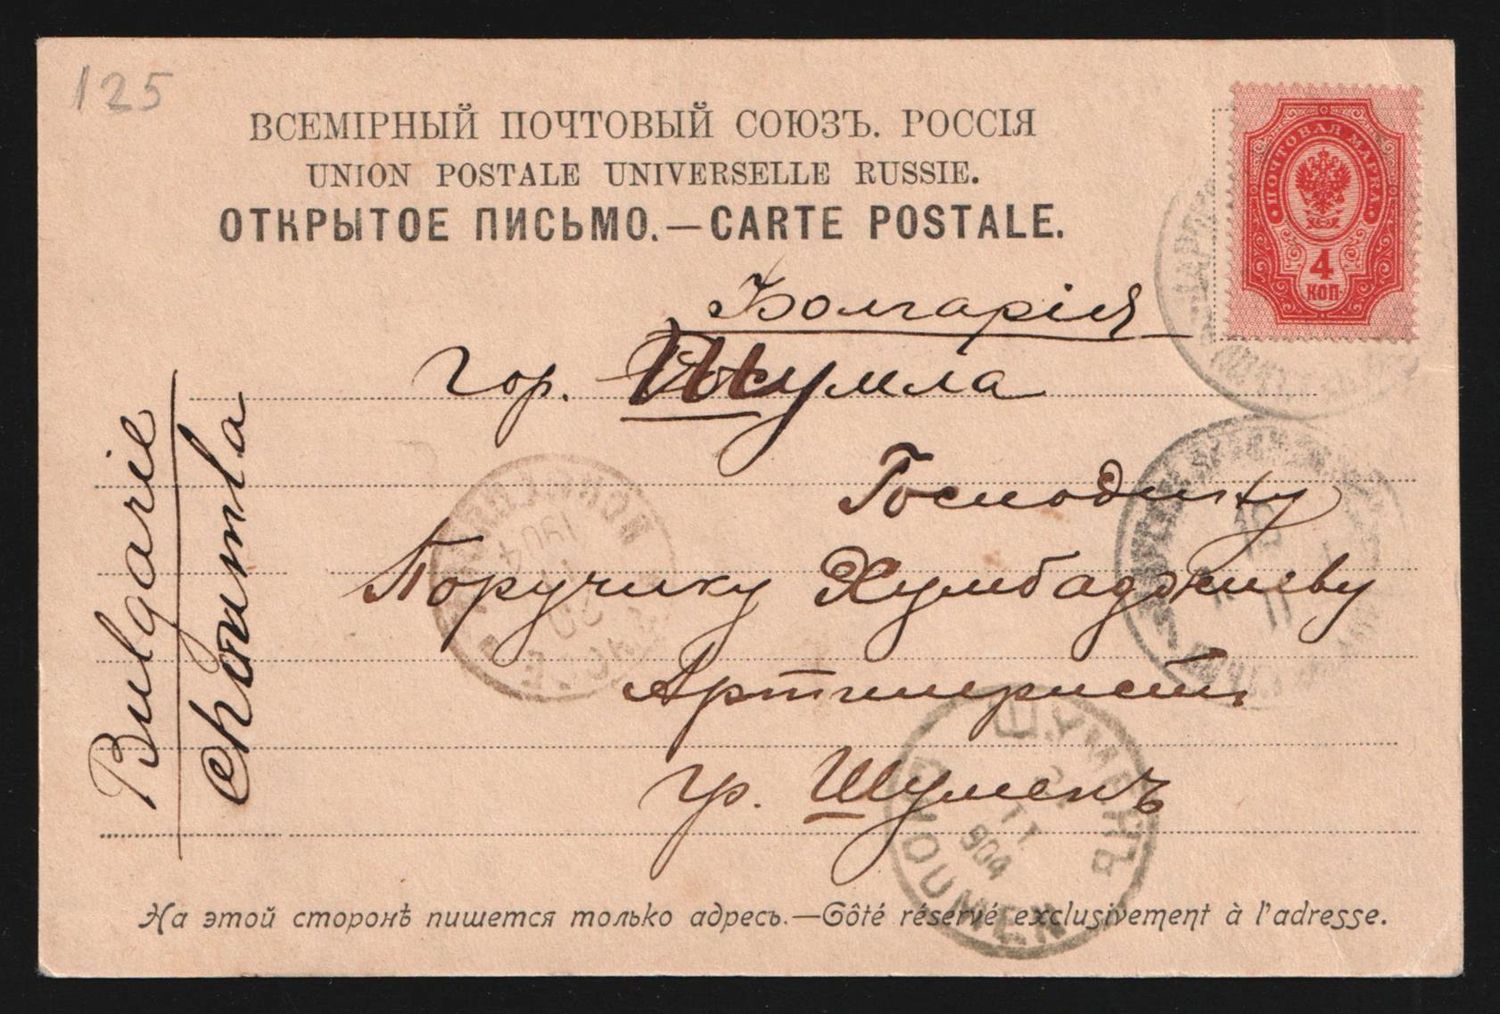 125
ВСЕМІРНЫЙ ПОЧТОВЫЙ СОЮЗЪ. РОССІЯ
UNION POSTALE UNIVERSELLE RUSSIE.
ОТКРЫТОЕ ПИСЬМО.—CARTE POSTALE.
ПОЧТОВАЯ МАРКА
4
КОП
Болгарія
гор. Шумла
Господину
Поручику Хумбаджиеву
Артилерист
гр. Шуменъ
Bulgarie
Choumla
1904
ШУМЕНЪ
II
904
CHOUMEN
На этой сторонѣ пишется только адресъ.—Côté réservé exclusivement à l'adresse.